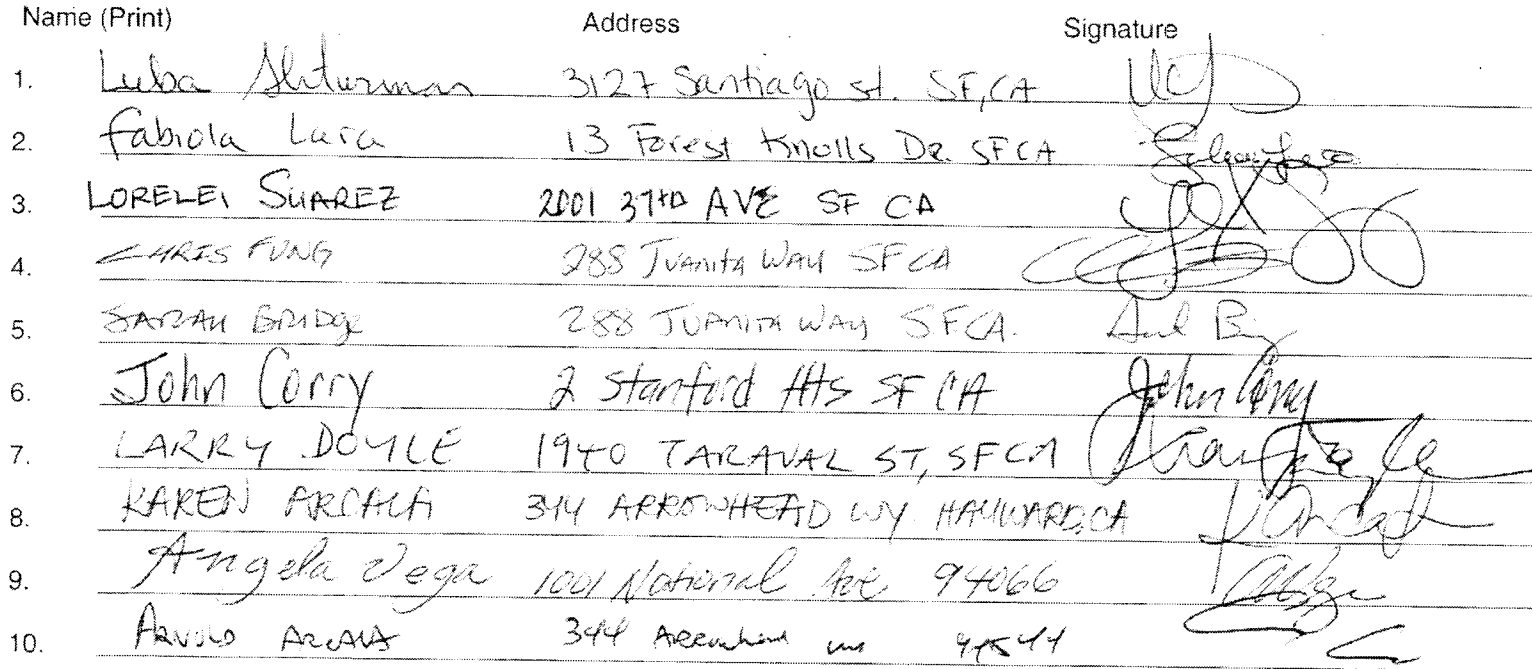 Name (Print) Address Signature
1. Luba Shturman 3127 Santiago st. SF, CA
2. fabiola Lara 13 Forest Knolls Dr. SF CA
3. LORELEI SUAREZ 2001 37th AVE SF CA
4. CHRIS FUNG 288 JUANITA WAY SF CA
5. SARAH BRIDGE 288 JUANITA WAY SF CA.
6. John Corry 2 Stanford Hts SF CA John Corry
7. LARRY DOYLE 1940 TARAVAL ST, SF CA
8. KAREN ARCALA 344 ARROWHEAD WY. HAYWARD, CA
9. Angela Vega 1001 National Ave 94066
10. ARNOLD ARCALA 344 Arrowhead 94544